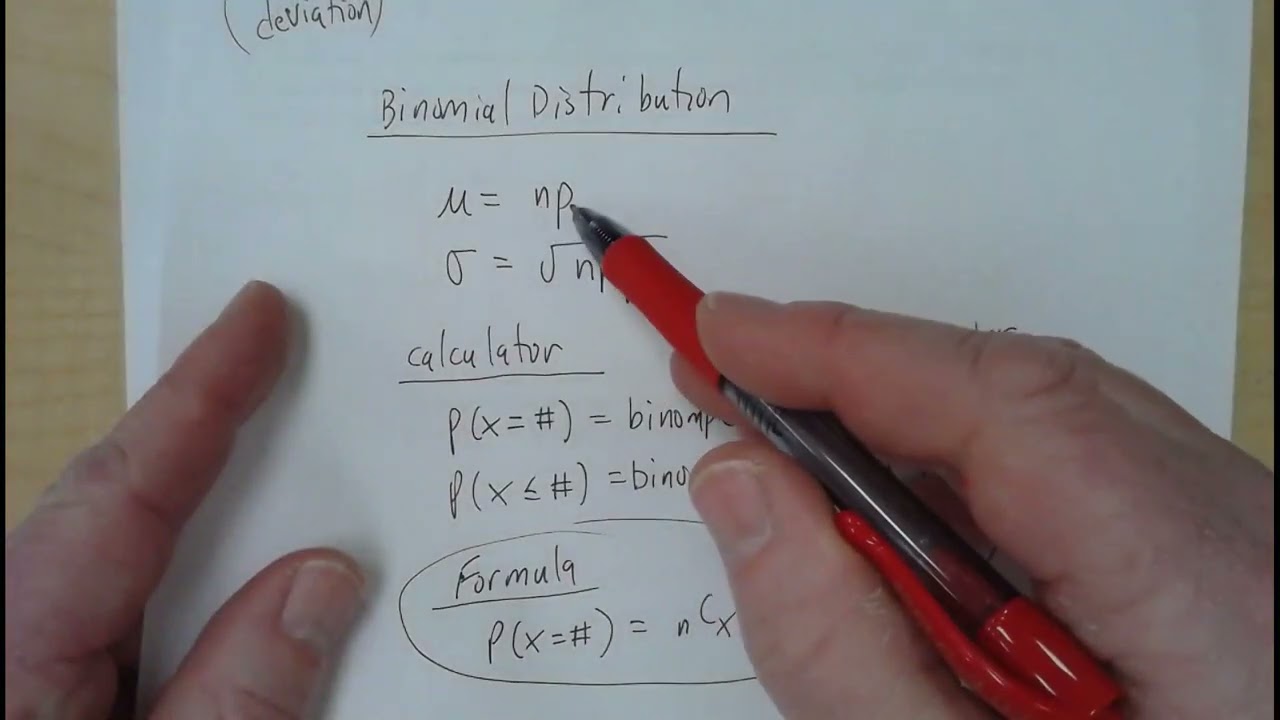 (deviation)
Binomial Distribution
μ = np
σ = √np
calculator
P(x=#) = binomp
P(x≤#) = bino
Formula
P(x=#) = nCx